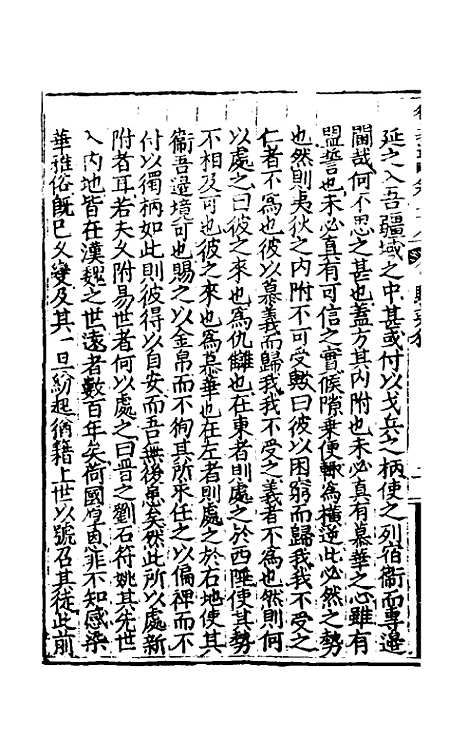 延之入吾疆域之中甚或付以戈兵之柄使之列宿衛而專邊
閫哉何不思之甚也蓋方其内附也未必真有慕華之心雖有
盟誓也未必真有可信之實候隙乗便輙為横逆此必然之勢
也然則夷狄之内附不可受歟曰彼以困窮而歸我我不受之
仁者不為也彼以慕義而歸我我不受之義者不為也然則何
以處之曰彼之來也為仇讎也在東者則處之於西陲使其勢
不相及可也彼之來也為慕華也在左者則處之於右地使其
衞吾邉境可也賜之以金帛而不徇其所求任之以偏禆而不
付以獨柄如此則彼得以自安而吾無後患矣然此所以處新
附者耳若夫久附易世者何以處之曰晋之劉石符姚其先世
入内地皆在漢魏之世遠者數百年矣荷國厚恩非不知感染
華雅俗既已久變及其一旦紛起猶藉上世以號召其徒此前